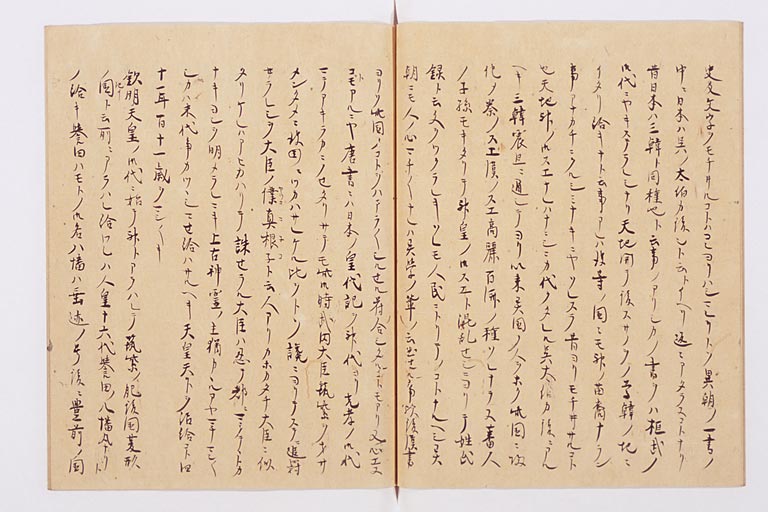 史ヲ文字ヲモチヰルコトハコレヨリハシマレリトソ異朝ノ一書ノ
中ニ日本ハ呉ノ太伯カ後也ト云トイヘリ返々アタラヌコトナリ
昔日本ハ三韓ト同種也ト云事ノアリシカノ書ヲハ桓武ノ
御代ニヤキステラレシナリ天地開テ後スサノヲノ尊韓ノ地ニ
イタリ給キナト云事アレハ彼等ノ国々モ神ノ苗裔ナラン
事アナカチニクルシミナキニヤソレスラ昔ヨリモチヰサルコト
也天地神ノ御スエナレハナニシカ代クタレル呉太伯カ後ニアル
ヘキ三韓震旦ニ通シテヨリ以来異国ノ人多ク此国ニ帰
化シキ秦ノスエ漢ノスエ高麗百済ノ種ソレナラヌ蕃人
ノ子孫モキタリテ神皇ノ御スエト混乱セシニヨリテ姓氏
録ト云文ヲツクラレキソレモ人民ニトリテノコトナルヘシ異
朝ニモ人ノ心マチ〳〵ナレハ異学ノ輩ノ云出セル事歟後漢書
ヨリソ此国ノコトヲハアラ〳〵シルせル符合シタルコトモアリ又心エヌ
コトモアルニヤ唐書ニハ日本ノ皇代記ヲ神代ヨリ光孝ノ御代
マテアキラカニノセタリサテモ此御時武内大臣筑紫ヲヲサ
メンタメニ彼国ニツカハサレケル比ヲトヽノ讒ニヨリテステニ追討
せラレシヲ大臣ノ僕真根子ト云人アリカホカタチ大臣ニ似
タリケレハアヒカハリテ誅せラル大臣ハ忍テ都ニマウテヽトカ
ナキヨシヲ明メラレニキ上古神霊ノ主猶カヽルアヤマチマシ〳〵
シカハ末代争カツヽシマせ給ハサルヘキ天皇天下ヲ治給コト四
十一年百十一歳ヲマシ〳〵キ
欽明天皇ノ御代ニ始テ神トアラハレテ筑紫ノ肥後国菱形
ノ ト云所ニアラハレ給ワレハ人皇十六代誉田ノ八幡丸ナリト
ノ給キ誉田ハモトノ御名八幡ハ垂迹ノ号後ニ豊前ノ国